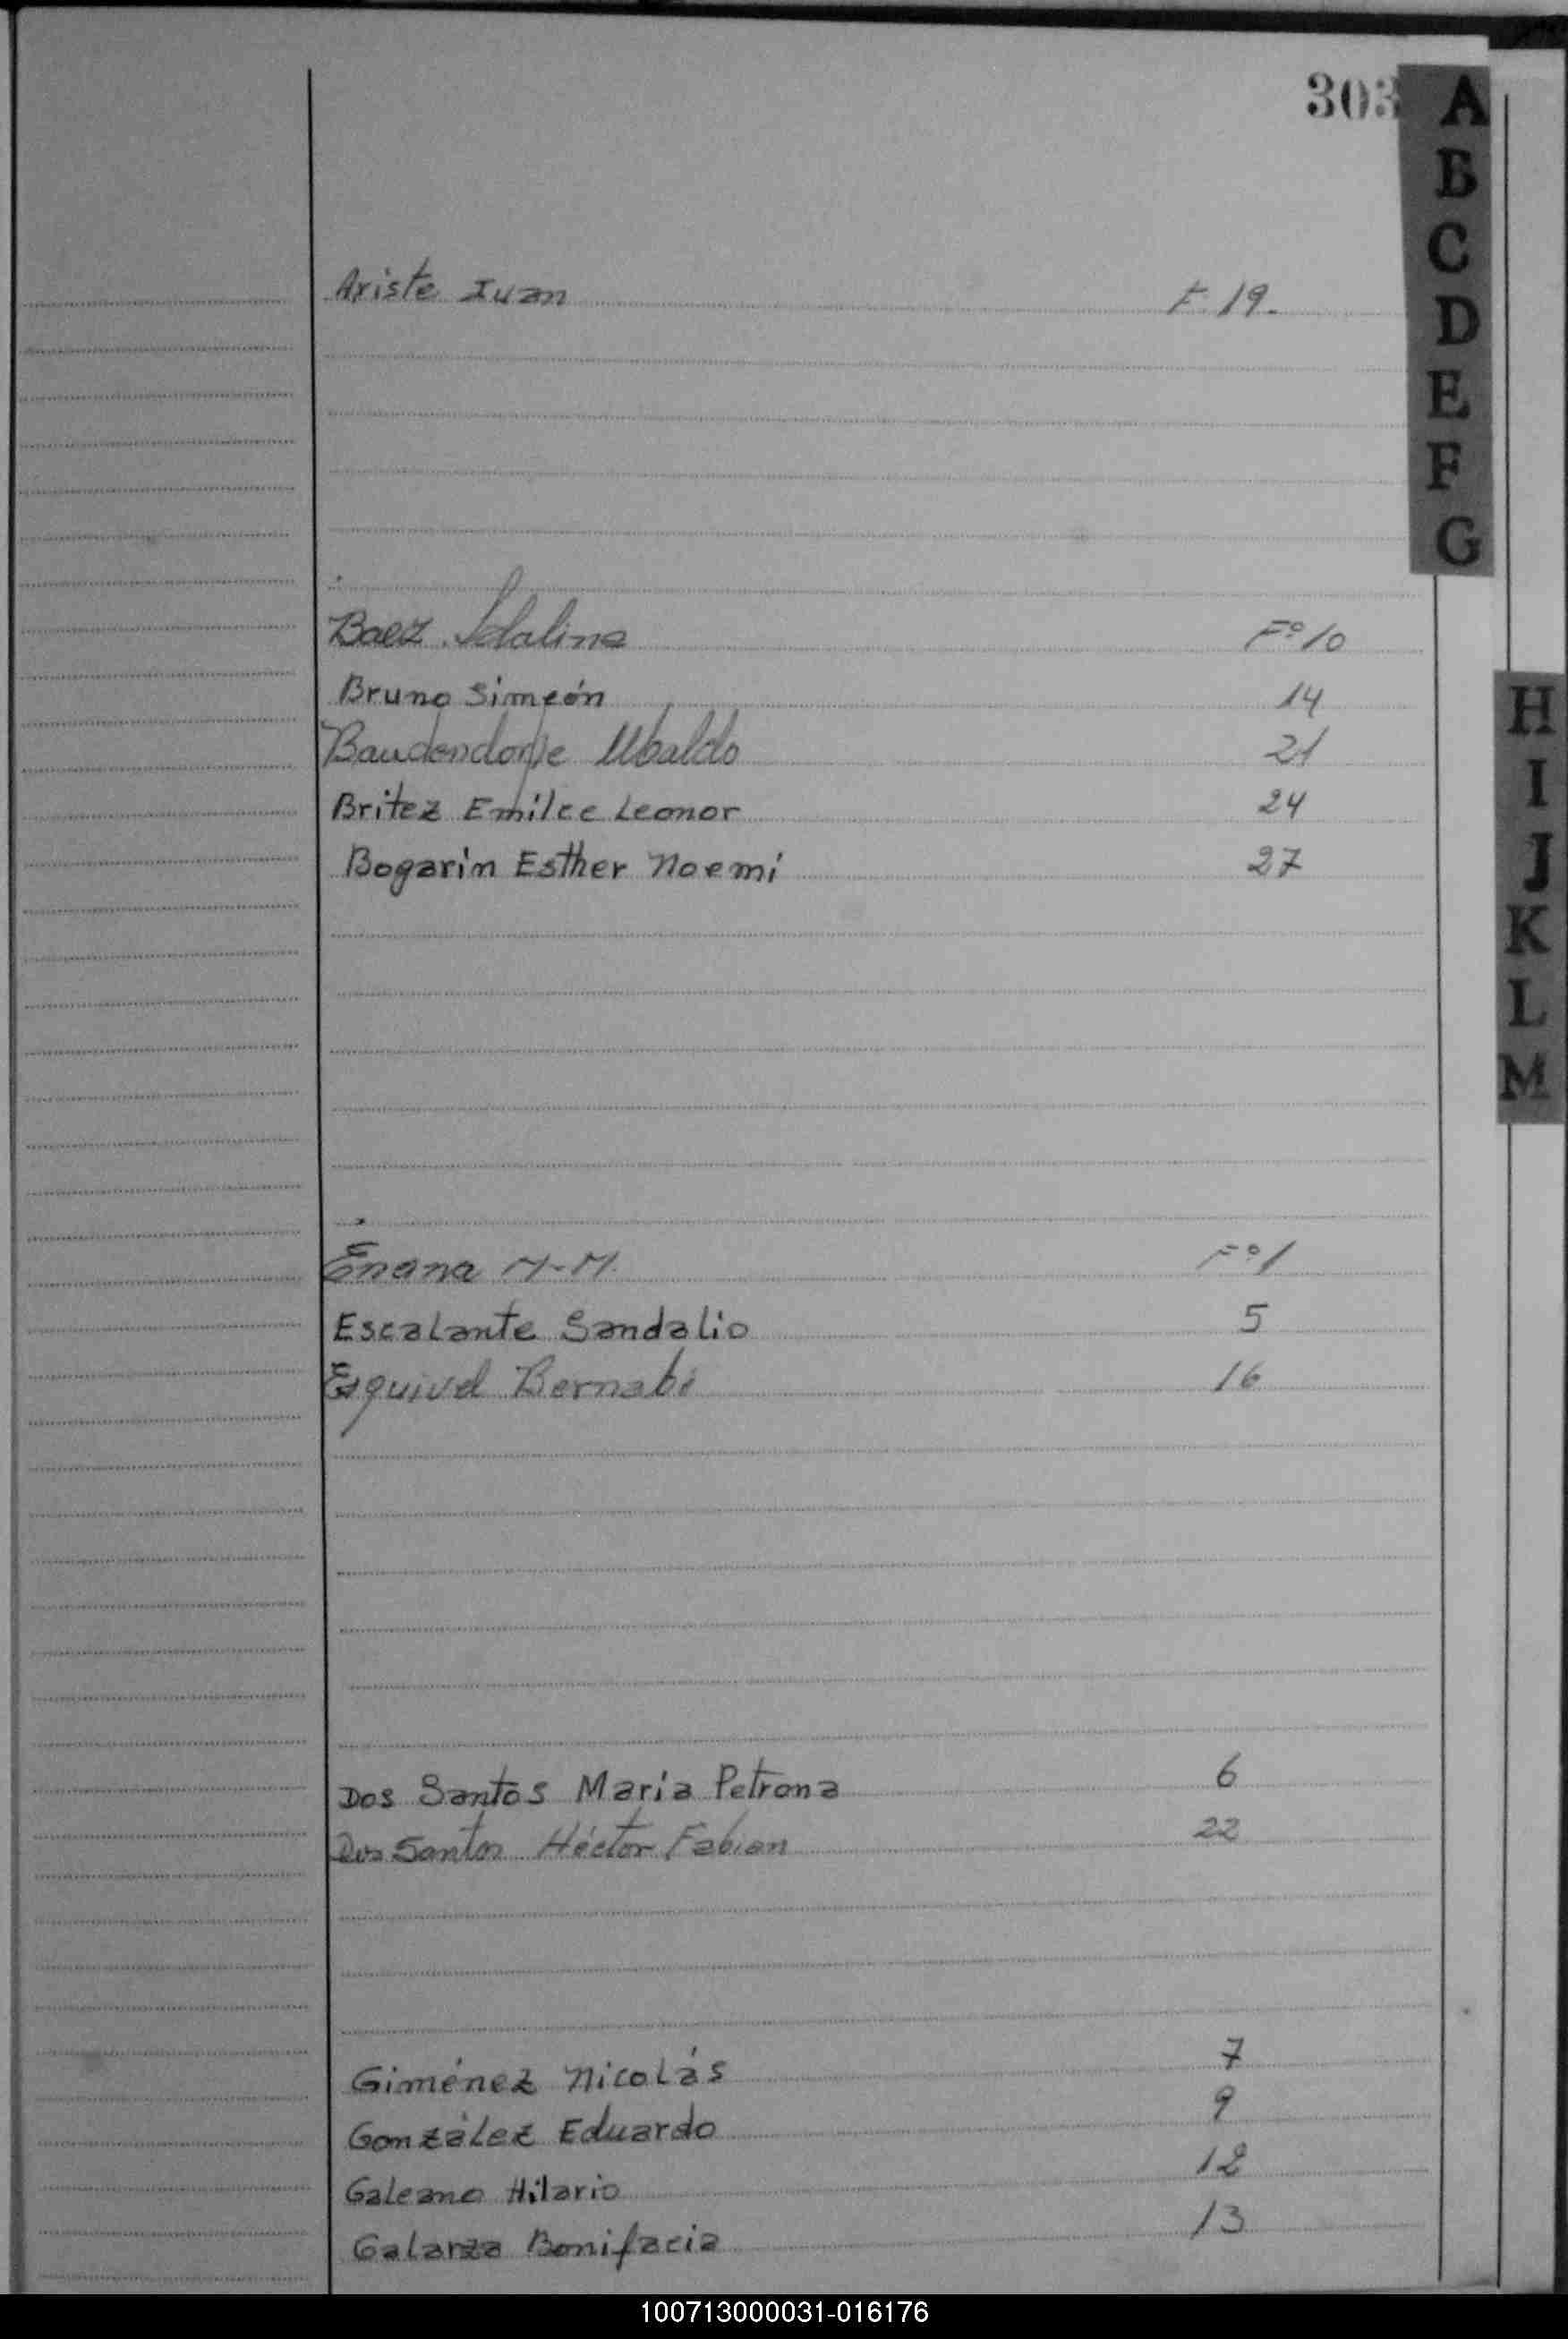 303
A
B
C
D
E
F
G
Ariste Juan F. 19.
Baez Idalina Fº 10
Bruno Simeón 14
Ubaldo 21
Britez Emilce Leonor 24
Bogarin Esther Noemí 27
H
I
J
K
L
M
Enana M-M. Fº 1
Escalante Sandalio 5
Esquivel Bernabé 16
Dos Santos Maria Petrona 6
Dos Santos Héctor Fabian 22
Giménez Nicolás 7
González Eduardo 9
Galeano Hilario 12
Galarza Bonifacia 13
100713000031-016176